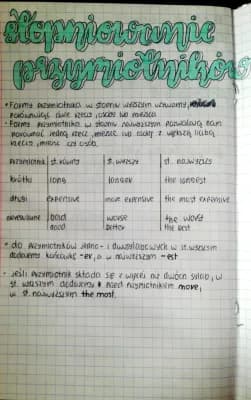 stopniowanie
przymiotników
• Formy przymiotnika w stopniu wyższym używamy,
porównując dwie rzeczy, osoby lub miejsca.
• Formy przymiotnika w stopniu najwyższym pozwalają nam
porównać jedną rzecz, miejsce lub osobę z większą liczbą
rzeczy, miejsc czy osób.
przymiotnik st. równy st. wyższy st. najwyższy
krótki long longer the longest
długi expensive more expensive the most expensive
nieregularne bad worse the worst
good better the best
- do przymiotników jedno- i dwusylabowych w st. wyższym
dodajemy końcówkę -er, a w najwyższym -est
- Jeśli przymiotnik składa się z więcej niż dwóch sylab, w
st. wyższym dodajemy przed przymiotnikiem more,
w st. najwyższym the most.